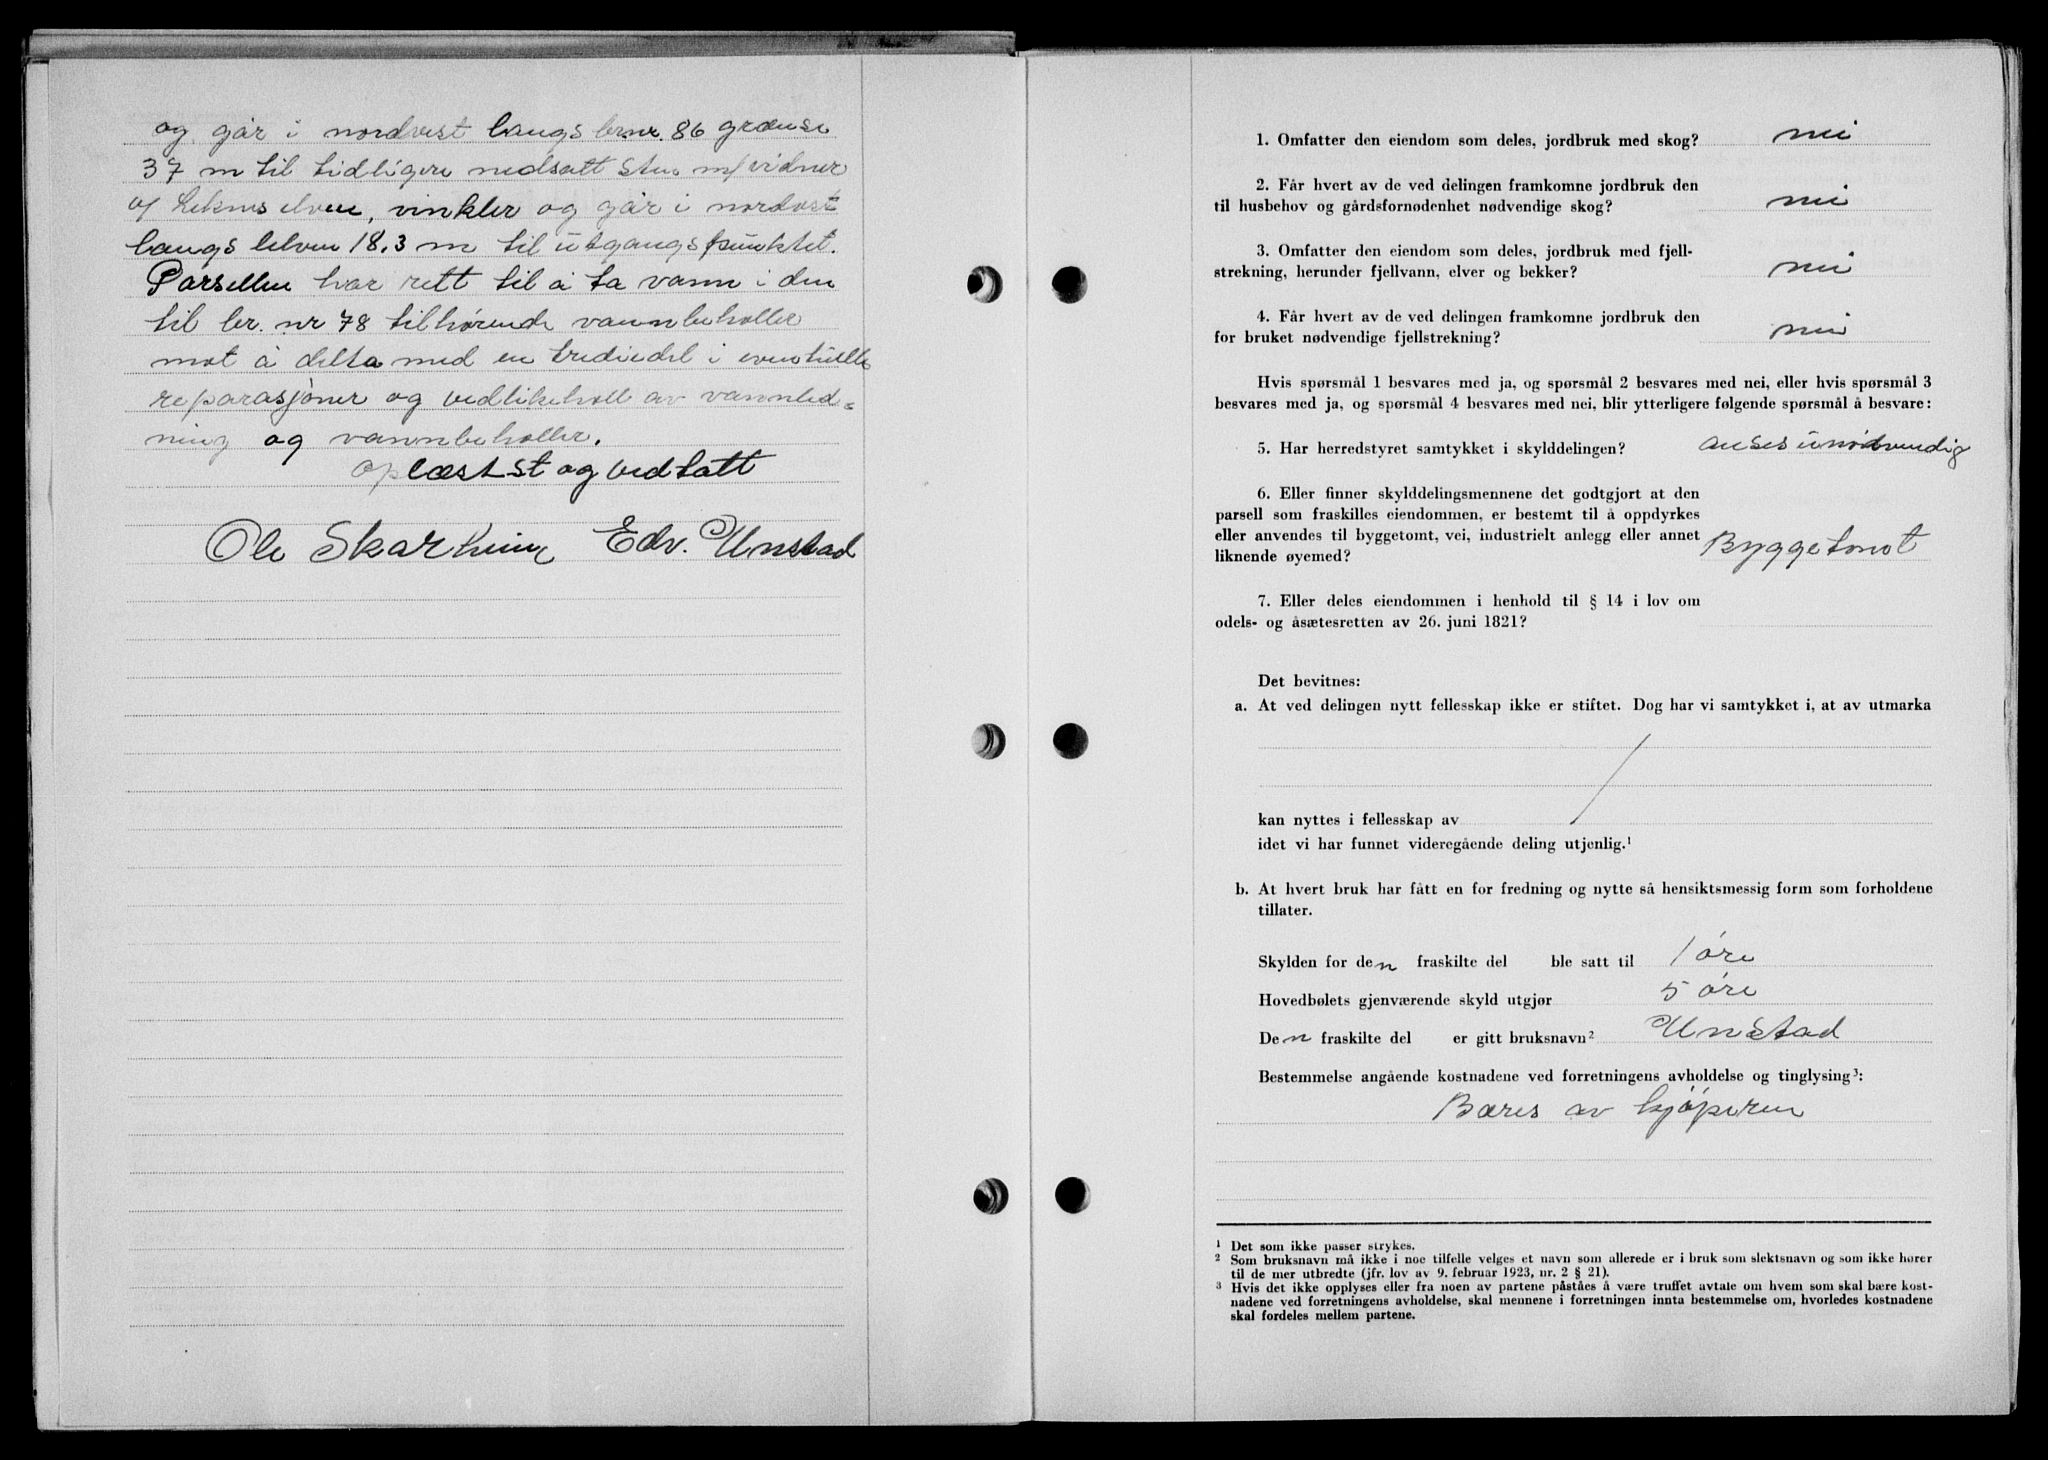 og går i nordvest langs brnr. 86 grænse
37 m til tidligere nedsatt sten m/vidner
v/ Leknes elven, vinkler og går i nordøst
langs elven 18.3 m til utgangspunktet.
Parsellen har rett til å ta vann i den
til br. nr 78 tilhørende vannbeholler
mot å delta med en trediedel i eventuelle
reparasjoner og vedlikeholl av vannled=
ning og vannbeholler.
oplæst st og vedtatt
Ole Skarheim Edv. Unstad
1. Omfatter den eiendom som deles, jordbruk med skog? nei
2. Får hvert av de ved delingen framkomne jordbruk den
til husbehov og gårdsfornødenhet nødvendige skog? nei
3. Omfatter den eiendom som deles, jordbruk med fjell-
strekning, herunder fjellvann, elver og bekker? nei
4. Får hvert av de ved delingen framkomne jordbruk den
for bruket nødvendige fjellstrekning? nei
Hvis spørsmål 1 besvares med ja, og spørsmål 2 besvares med nei, eller hvis spørsmål 3
besvares med ja, og spørsmål 4 besvares med nei, blir ytterligere følgende spørsmål å besvare:
5. Har herredstyret samtykket i skylddelingen? anses unødvendig
6. Eller finner skylddelingsmennene det godtgjort at den
parsell som fraskilles eiendommen, er bestemt til å oppdyrkes
eller anvendes til byggetomt, vei, industrielt anlegg eller annet
liknende øyemed? Byggetomt
7. Eller deles eiendommen i henhold til § 14 i lov om
odels- og åsætesretten av 26. juni 1821?
Det bevitnes:
a. At ved delingen nytt fellesskap ikke er stiftet. Dog har vi samtykket i, at av utmarka
kan nyttes i fellesskap av
idet vi har funnet videregående deling utjenlig.¹
b. At hvert bruk har fått en for fredning og nytte så hensiktsmessig form som forholdene
tillater.
Skylden for den fraskilte del ble satt til 1 øre
Hovedbølets gjenværende skyld utgjør 5 øre
Den fraskilte del er gitt bruksnavn² Unstad
Bestemmelse angående kostnadene ved forretningens avholdelse og tinglysing³:
Bæres av kjøperen
¹ Det som ikke passer strykes.
² Som bruksnavn må ikke i noe tilfelle velges et navn som allerede er i bruk som slektsnavn og som ikke hører
til de mer utbredte (jfr. lov av 9. februar 1923, nr. 2 § 21).
³ Hvis det ikke opplyses eller fra noen av partene påståes å være truffet avtale om hvem som skal bære kost-
nadene ved forretningens avholdelse, skal mennene i forretningen innta bestemmelse om, hvorledes kostnadene
skal fordeles mellem partene.